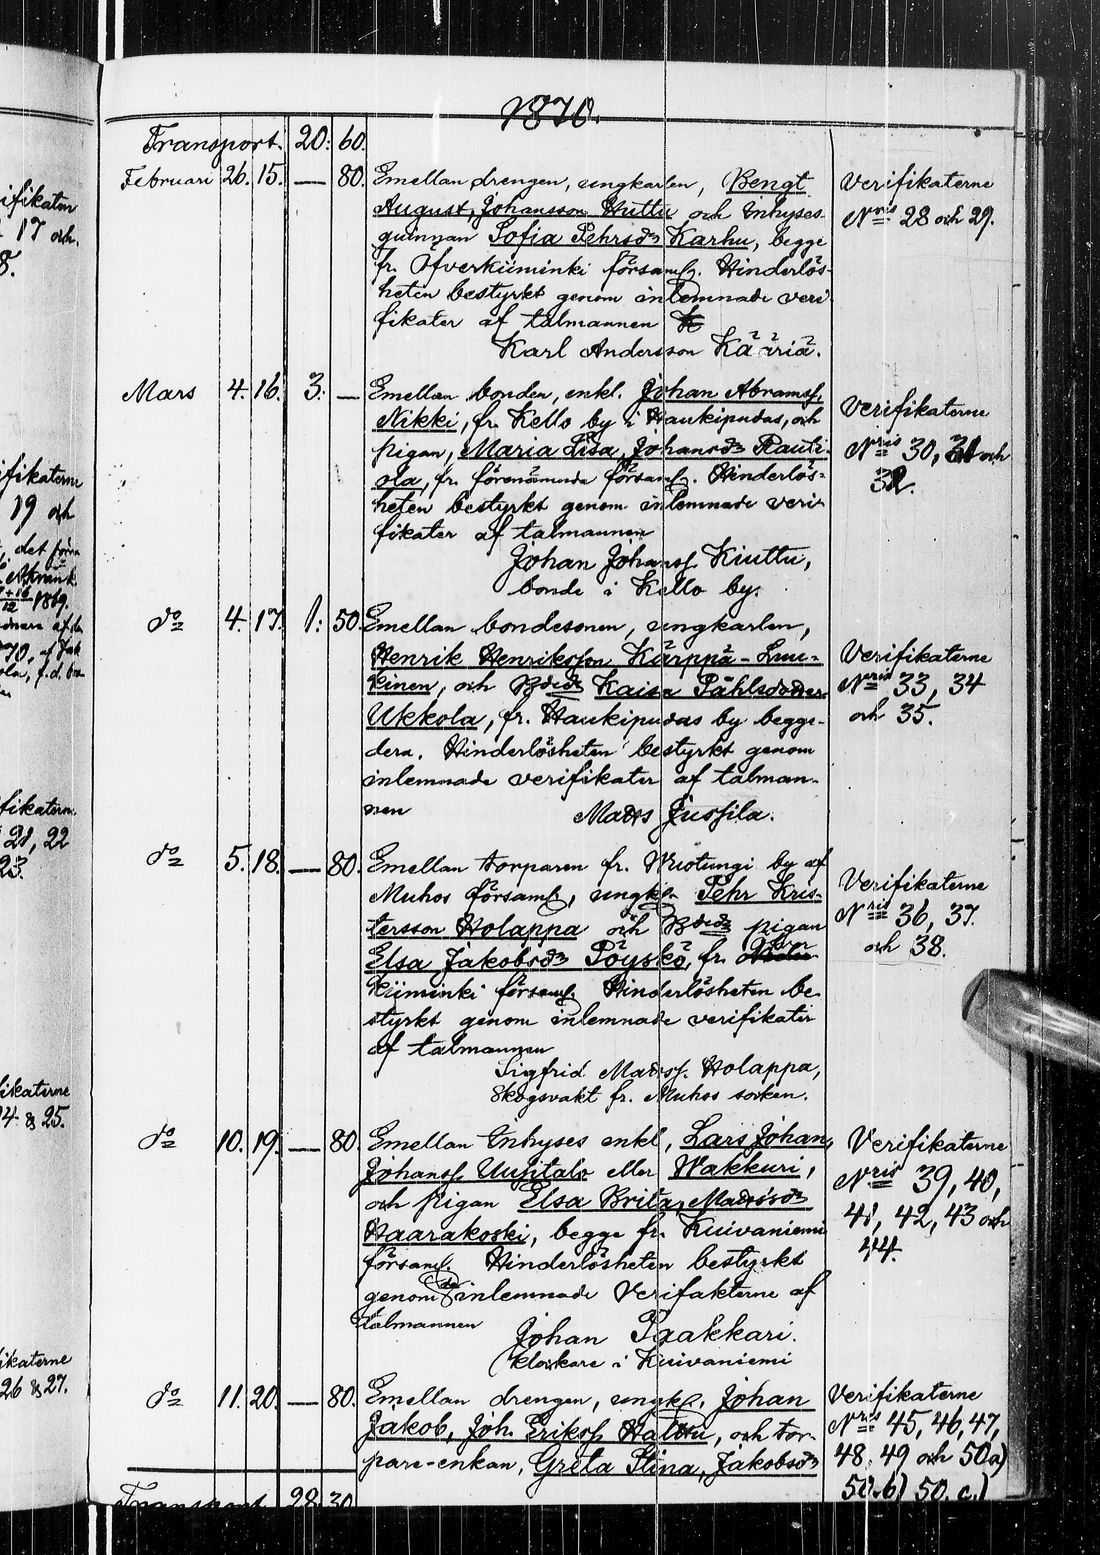 1870.
Transport. 20: 60.
Februari 26. 15. — 80. Emellan drengen, ungkarlen, Bengt
August, Johansson Huttu och Inhyses
quinnan Sofia Pehrsdr Karhu, begge
fr. Öfverkiiminki församlg. Hinderlös-
heten bestyrkt genom inlemnade veri
fikater af talmannen
Karl Andersson Kääriä.
Verifikaterne
Nris 28 och 29.
Mars 4. 16. 3. — Emellan bonden, enkl. Johan Abramsf.
Nikki, fr. Kello by i Haukipudas, och
pigan, Maria Lisa, Johansdr Rauti-
ola, fr. förenämnde församlg. Hinderlös-
heten bestyrkt genom inlemnade veri-
fikater af talmannen
Johan Johansf Kiuttu,
bonde i Kello by.
Verifikaterne
Nris 30, 31 och
32.
do 4. 17. 1: 50. Emellan bondesonen, ungkarlen,
Henrik Henriksson Kärppä-Luu-
kinen, och Bdedr Kaisa Påhlsdotter
Ukkola, fr. Haukipudas by begge-
dera. Hinderlösheten bestyrkt genom
inlemnade verifikater af talman-
nen Mats Jussila.
Verifikaterne
Nris 33, 34
och 35.
do 5. 18. — 80. Emellan torparen fr. Wuotungi by af
Muhos församl., ungkl. Pehr Kris-
tersson Holappa och Bdedr pigan
Elsa Jakobsdr Pöyskö, fr. Öfver
kiiminki församl. Hinderlösheten be-
styrkt genom inlemnade verifikater
af talmannen
Sigfrid Matsf. Holappa,
Skogsvakt fr. Muhos socken.
Verifikaterne
Nris 36, 37.
och 38.
do 10. 19. — 80. Emellan Inhyses enkl, Lars Johan,
Johansf Uusitalo eller Wakkuri,
och pigan Elsa Brita, Matsdr
Haarakoski, begge fr. Kuivaniemi
församl. Hinderlösheten bestyrkt
genom de inlemnade Verifakterne af
talmannen Johan Paakkari.
klockare i Kuivaniemi
Verifikaterne
Nris 39, 40,
41, 42, 43 och
44.
do 11. 20. — 80. Emellan drengen, ungkl. Johan
Jakob, Joh. Eriksf Halttu, och tor-
pare-enkan, Greta Stina, Jakobsdr
Verifikaterne
Nris 45, 46, 47,
48, 49 och 50 a)
50. b) 50. c.)
Transport 28. 30.